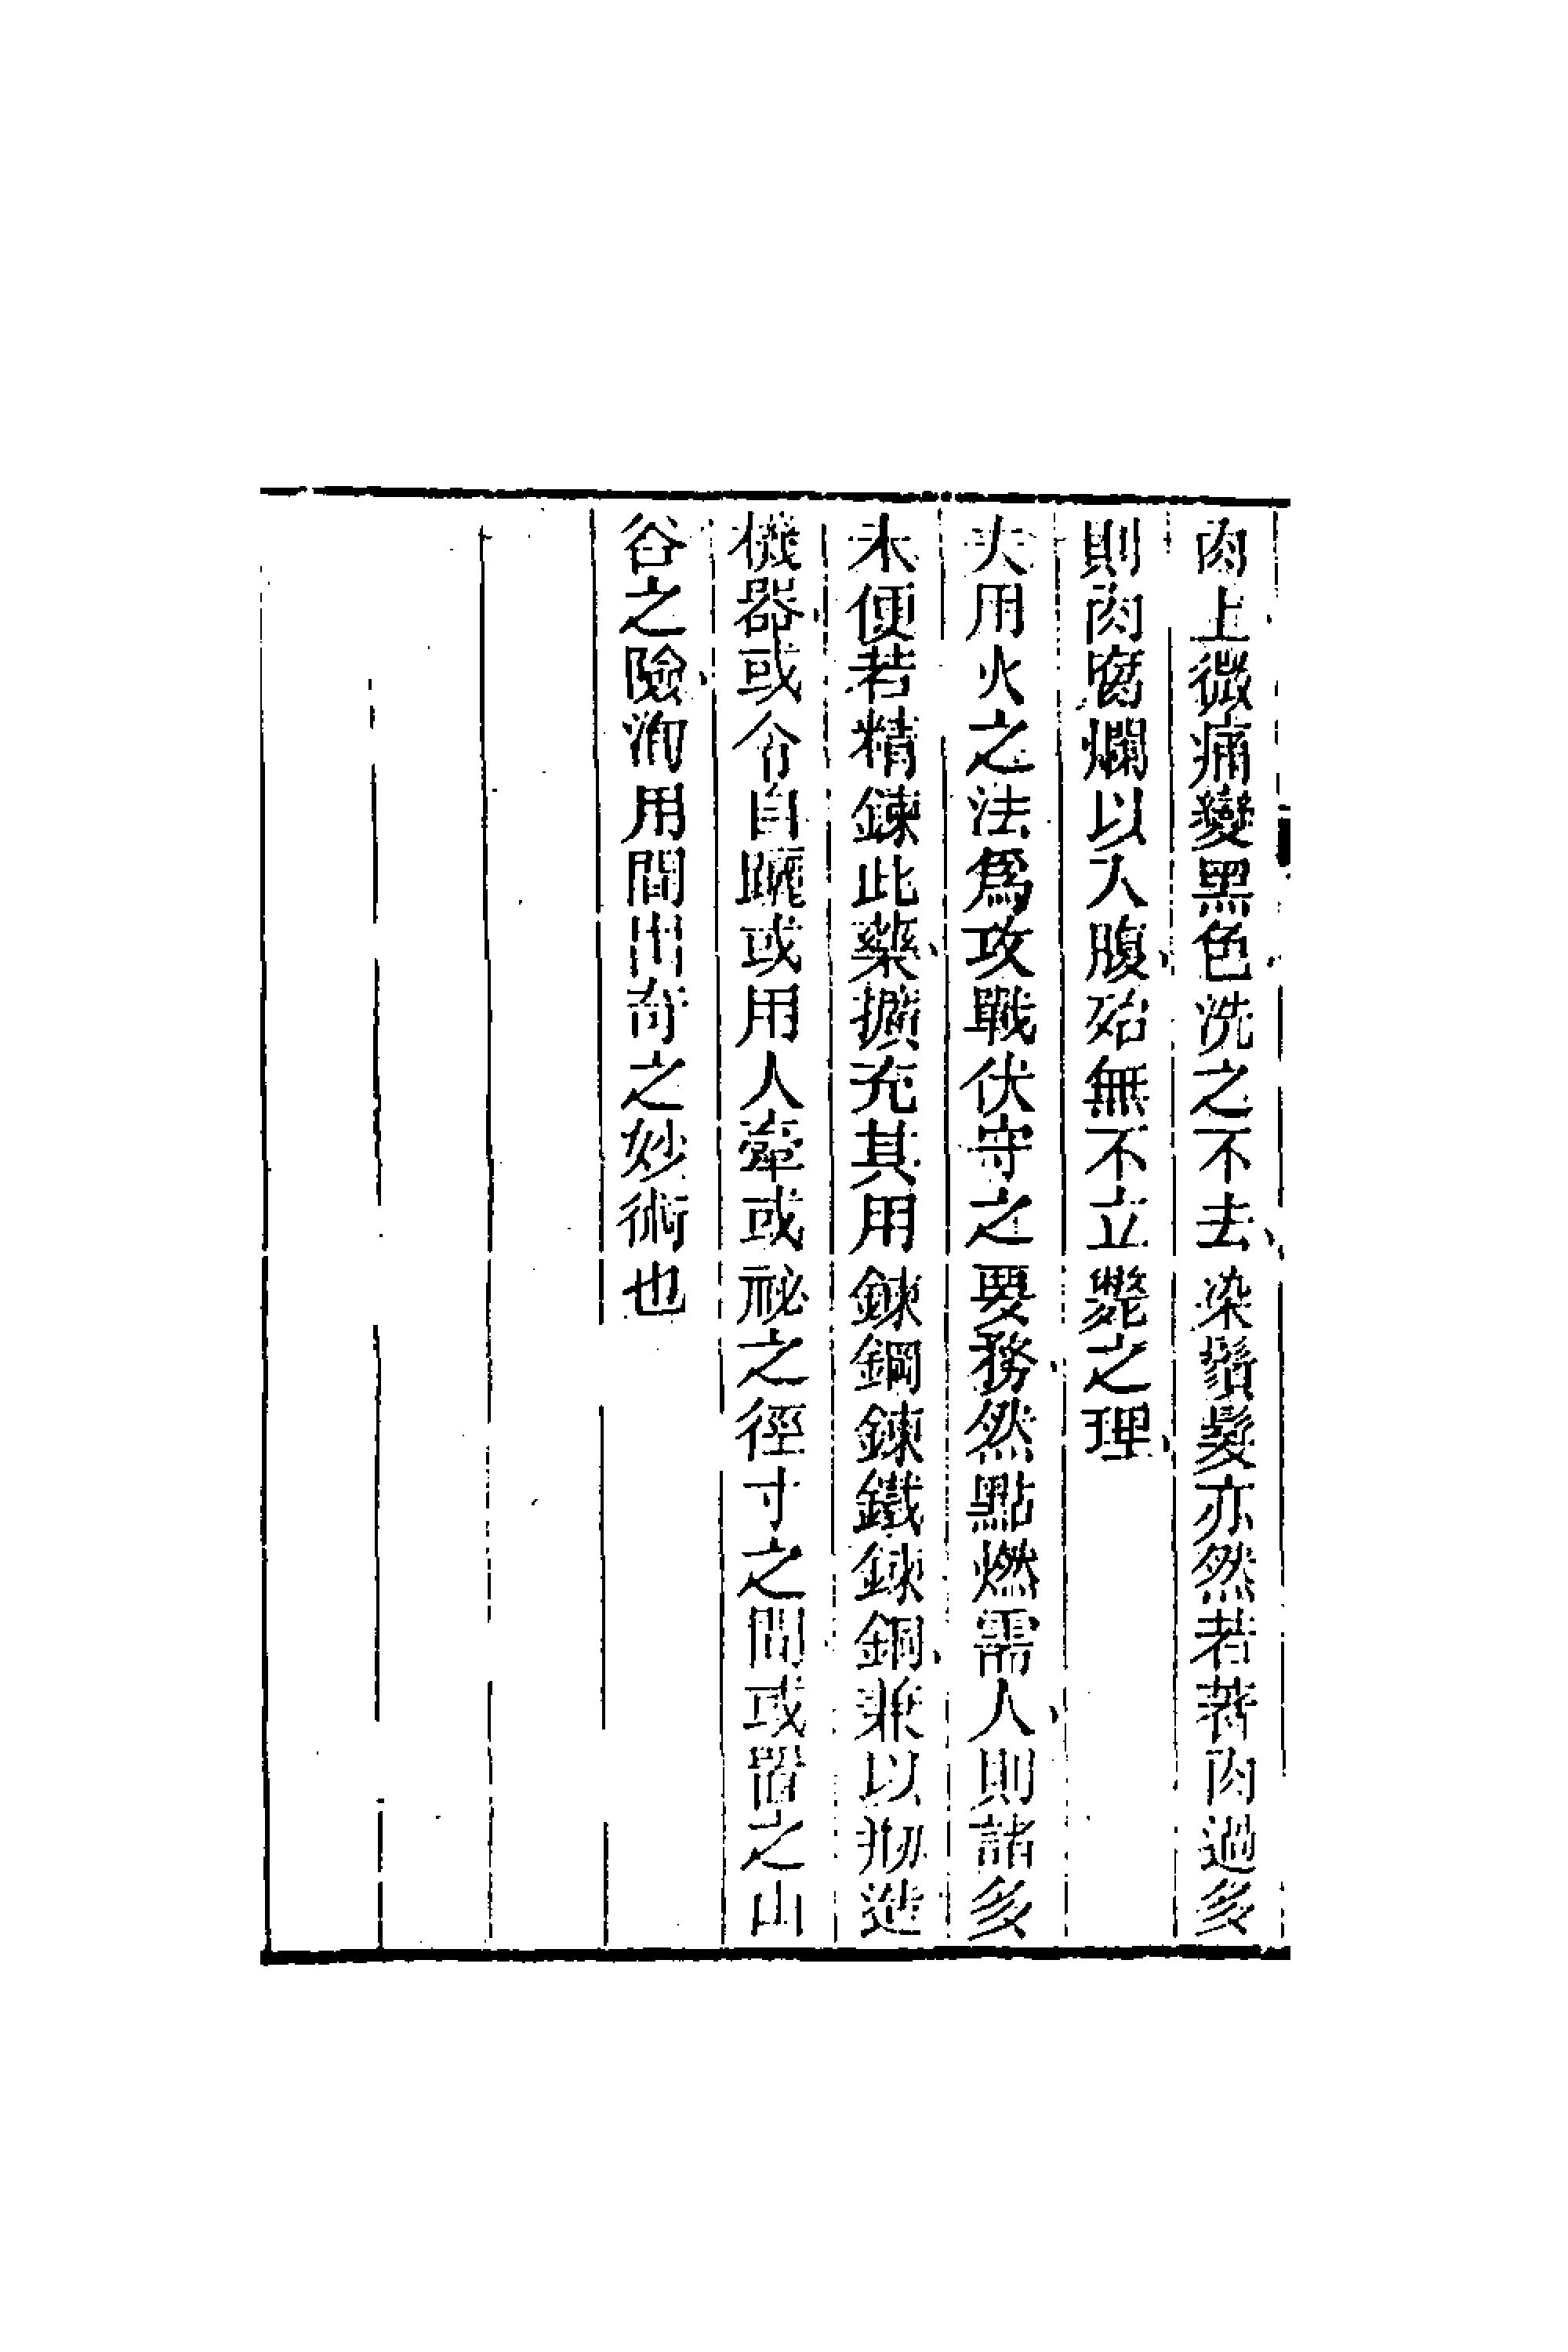 肉上微痛變黑色洗之不去染鬚髮亦然若著肉過多
則肉腐爛以入腹殆無不立斃之理
夫用火之法爲攻戰伏守之要務然點燃需人則諸多
未便若精鍊此藥擴充其用鍊鋼鍊鐵鍊銅兼以剙造
機器或令自躧或用人牽或祕之徑寸之間或置之山
谷之險洵用間出奇之妙術也